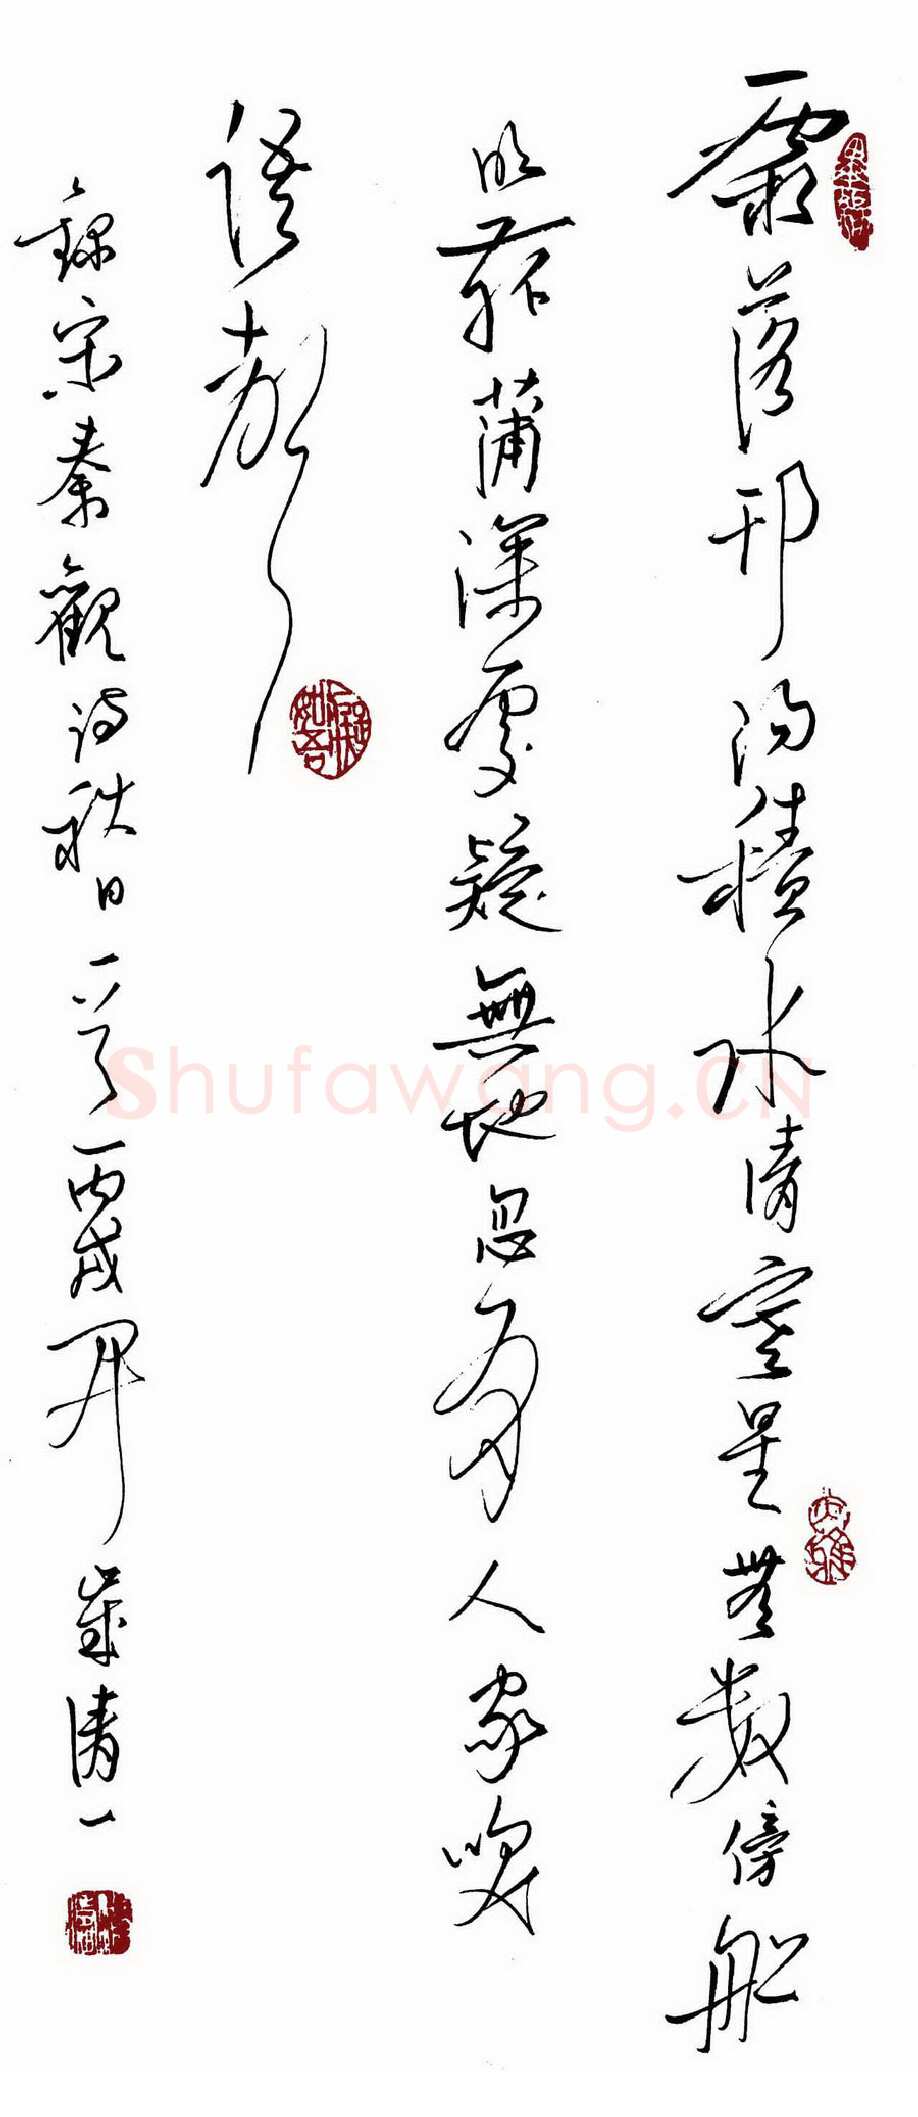 霜落邗沟积水清寒星无数傍船
明菰蒲深處疑無地忽有人家笑
语声
録宋秦觀诗秋日一首丙戌年崴清一
Shufawang.CN